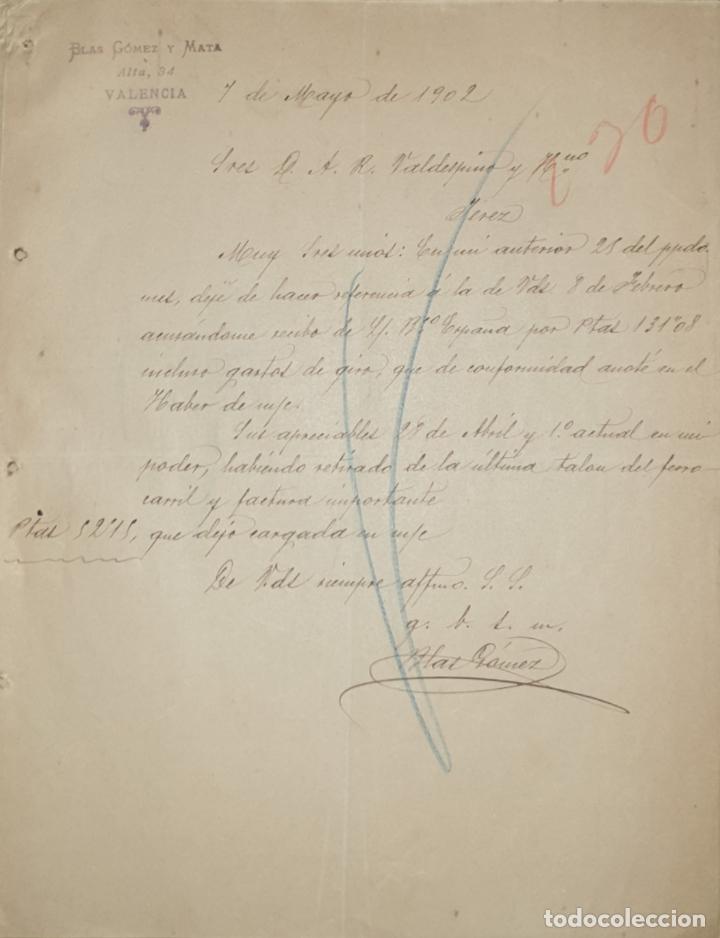 BLAS GÓMEZ Y MATA
Alta, 34
VALENCIA
7 de Mayo de 1902
70
Sres D. A. R. Valdespino y Hno
Jerez
Muy Sres mios: En mi anterior 25 del ppdo.
mes, dejé de hacer referencia á la de Vds 8 de Febrero
acusándome recibo de L/. Bco España por Ptas 131'08
incluso gastos de giro, que de conformidad anoté en el
Haber de m/c.
Sus apreciables 28 de Abril y 1.º actual en mi
poder, habiendo retirado de la última talon del ferro-
carril y factura importante
Ptas 52'15, que dejo cargada en m/c
De Vds siempre affmo. S. S.
q. b. s. m.
Blas Gómez
todocoleccion